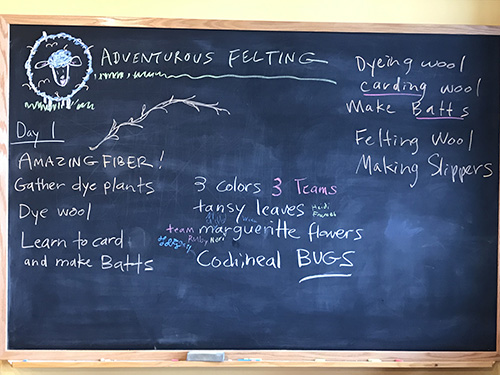 ADVENTUROUS FELTING
Dyeing wool
carding wool
Make Batts
Felting Wool
Making Slippers
Day 1
AMAZING FIBER!
Gather dye plants
Dye wool
Learn to card
and make Batts
3 colors 3 Teams
tansy leaves Heidi
team margueritte flowers
Ruby Nora
Cochineal BUGS